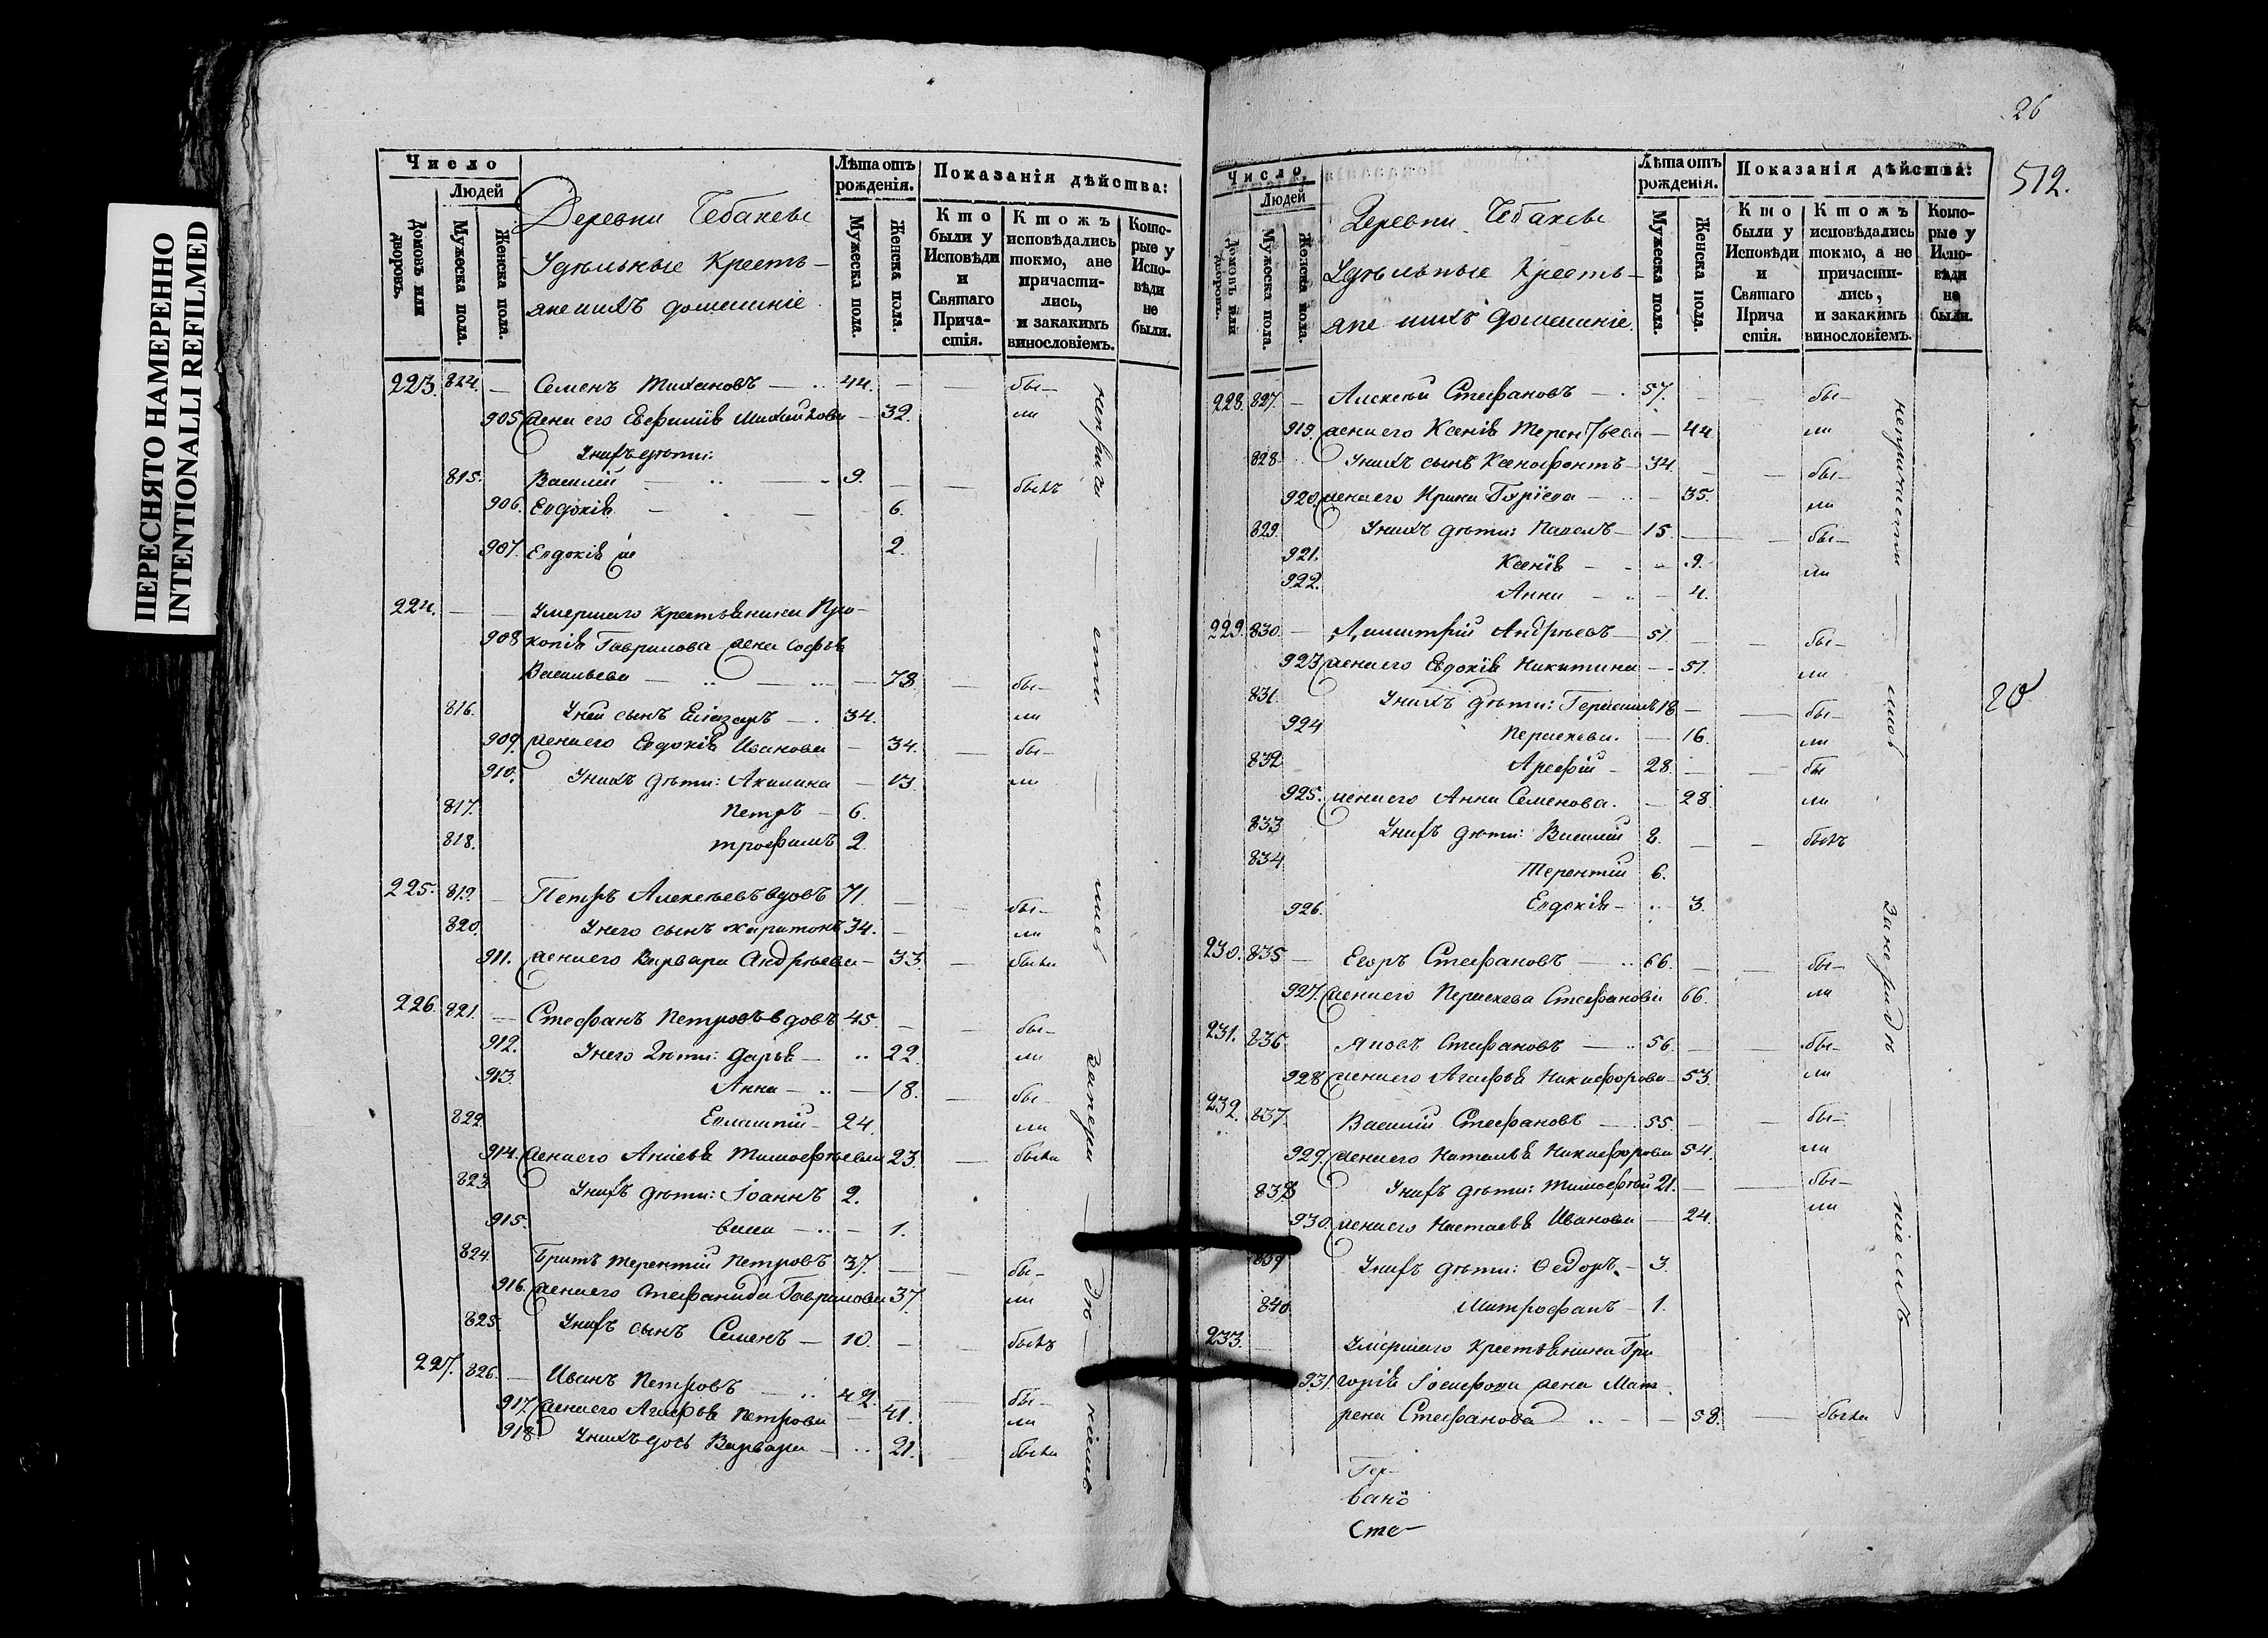 ПЕРЕСНЯТО НАМЕРЕННО
INTENTIONALLI REFILMED
Число
Людей
Домовъ или дворовъ.
Мужеска пола.
Женска пола.
Деревни Чебаковы
Удѣльные Кресть-
яне ихъ домашніе
Лѣта отъ рожденія.
Мужеска пола.
Женска пола.
Показанія дѣйства:
Кто были у Исповѣди и Святаго Прича-стія.
Ктожъ исповѣдались токмо, ане причасти-лись, и закакимъ винословіемъ.
Кото-рые у Испо-вѣди не были.
223. 824. — Семенъ — 44. — бы-
905 жена его Евфимія Михайлова — 32. ли
Унихъ дѣти:
815. Василій — 9. — былъ
906. Евдокія — 6.
907. Евдокія 2.
224. — — Умершаго крестьянина Про-
908 копія Гаврилова жена Софья
Васильева — 73. — бы-
816. Унеи сынъ Елиазаръ — 34. ли
909. жена его Евдокія Иванова — 34. — бы-
910. Унихъ дѣти: Акилина — 13. ли
817. Петръ — 6.
818. трофимъ 2.
225. 819. — Петръ Алексѣевъ вдовъ 71. — бы-
820. Унего сынъ харитонъ 34. — ли
911. жена его Варвара Андрѣева — 33. — была
226. 821. — Стефанъ Петровъ вдовъ 45. — бы-
912. Унего дѣти: дарья — 22. ли
913. Анна — 18. — бы-
822. Евлампій — 24. ли
914. жена его Анисья Тимофѣева 23. — была
823. Унихъ дѣти: Іоаннъ 2.
915. — 1.
824. Братъ терентій Петровъ 37. — бы-
916. жена его Стефанида Гаврилова 37. ли
825. Унихъ сынъ Семенъ — 10. — былъ
227. 826. — Иванъ Петровъ — 42. — бы-
917. жена его Агафья Петрова — 41. ли
918. Унихъ дочь Варвара — 21. — была
26
512.
Число
Людей
Домовъ или дворовъ.
Мужеска пола.
Женска пола.
Деревни Чебаковы
Удѣльные Кресть-
яне ихъ домашніе.
Лѣта отъ рожденія.
Мужеска пола.
Женска пола.
Показанія дѣйства:
Кто были у Исповѣди и Святаго Прича стія.
Ктожъ исповѣдались токмо, а не причасти-лись, и закакимъ винословіемъ.
Кото-рые у Испо-вѣди не были.
228. 827. — Алексѣй Стефановъ — 57. — бы-
919. жена его Ксенія Терентьева — 44 ли
828 Унихъ сынъ Ксенофонтъ — 34. — бы-
920 жена его Ирина Гурїева — 35. ли
829. Унихъ дѣти: Павелъ — 15. — бы-
921. Ксенїя — 9. ли
922. Анна — 4.
229. 830. — Димитрій Андрѣевъ — 51 — бы-
923 жена его Евдокїя Никитина — 51. ли
831. Унихъ дѣти: Герасимъ 18 — бы-
924 Параскева. — 16. ли
832 Арефій — 28. — бы
925. жена его Анна Семенова. — 28. ли
833 Унихъ дѣти: Василій 8. — былъ
834 Терентій 6.
926. Евдокія — 3.
230. 835 — Егоръ Стефановъ — 66. — бы-
927. жена его Параскева Стефанова 66. ли
231. 836 Яковъ Стефановъ — 56. — бы-
928 жена его Агафья Никифорова — 53. ли
232. 837. Василій Стефановъ — 55. — бы-
929. жена его Наталья Никифорова 54. ли
838 Унихъ дѣти: Тимофѣй 21. — бы-
930. жена его Настасья Иванова — 24. ли
839 Унихъ дѣти: Ѳедоръ — 3.
840. Митрофанъ — 1.
233. — Умершаго Крестьянина Гри
931. горія Іосифова жена Мат
рена Стефанова — 58. — была
20
Сте-